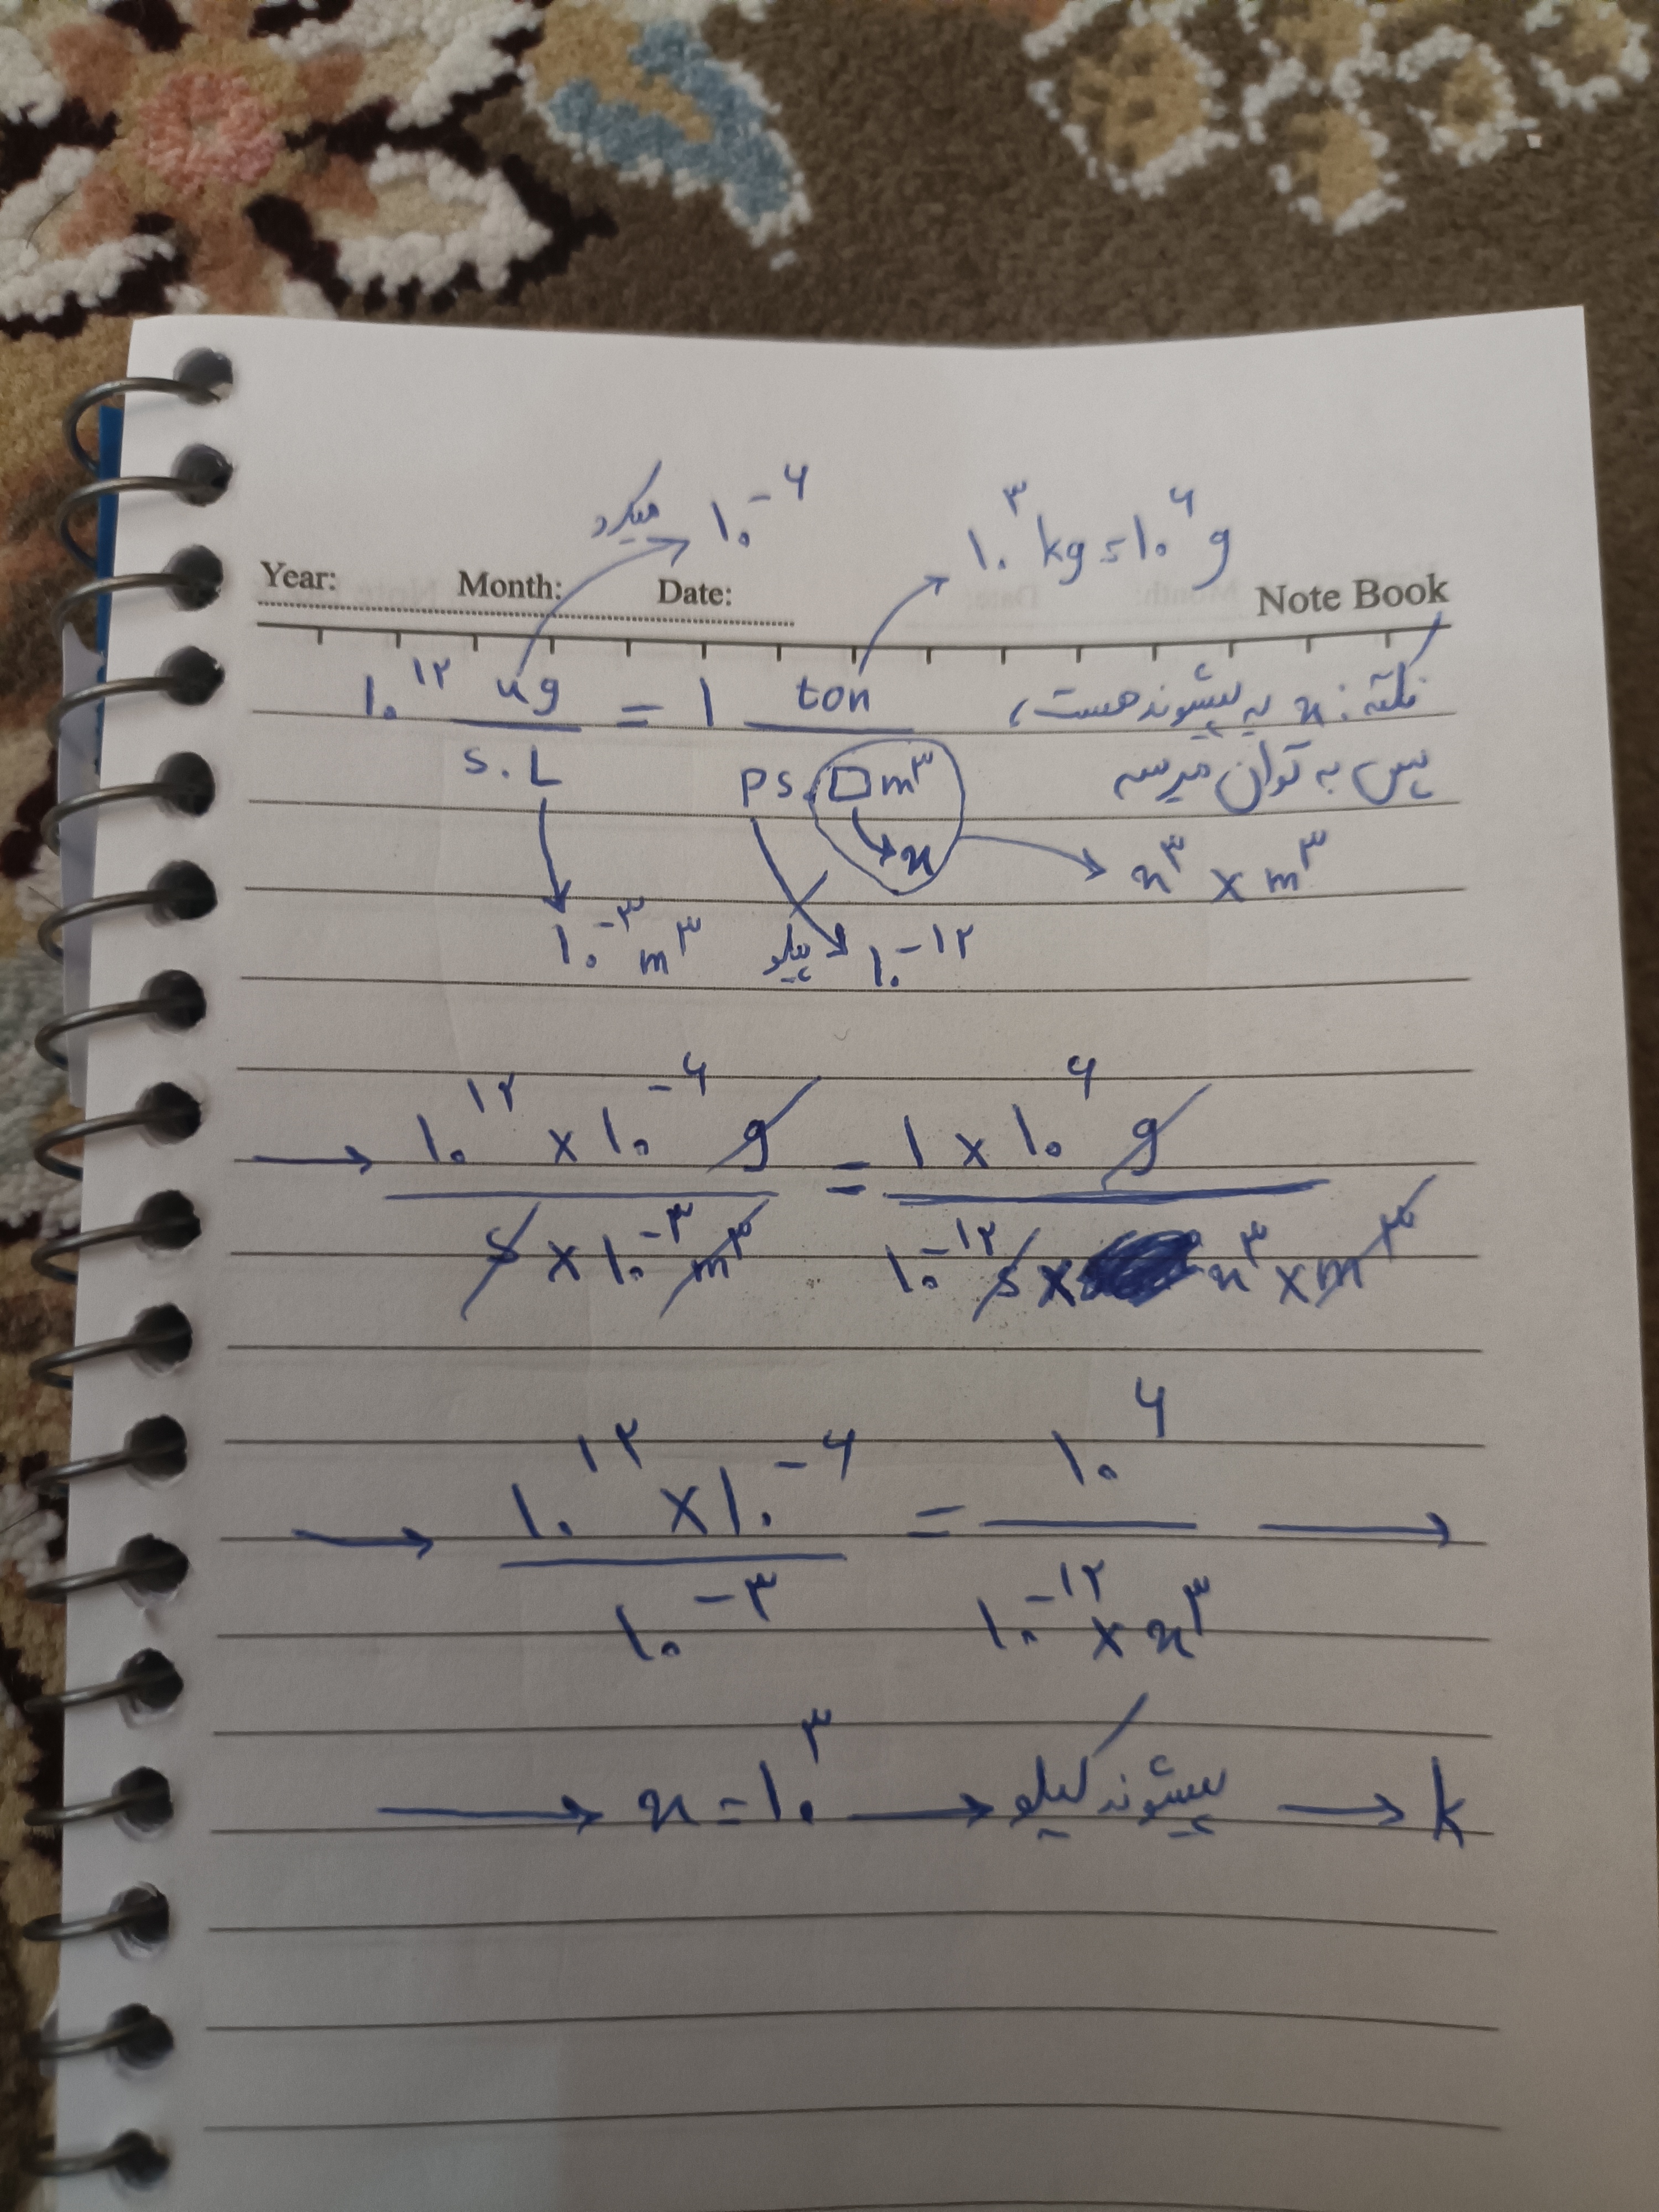 میکرو ۱۰^-۶
۱۰^۳ kg = ۱۰^۶ g
Year: Month: Date: Note Book
۱۰^۱۲ ug / s.L = ۱ ton / ps.□m^۳
نکته: x یه پیشوند هست،
پس به توان میرسه
x
x^۳ × m^۳
۱۰^-۳ m^۳
پیکو ۱۰^-۱۲
→ ۱۰^۱۲ × ۱۰^-۶ g / s × ۱۰^-۳ m^۳ = ۱ × ۱۰^۶ g / ۱۰^-۱۲ s × x^۳ × m^۳
→ ۱۰^۱۲ × ۱۰^-۶ / ۱۰^-۳ = ۱۰^۶ / ۱۰^-۱۲ × x^۳ →
→ x = ۱۰^۳ → پیشوند کیلو → k